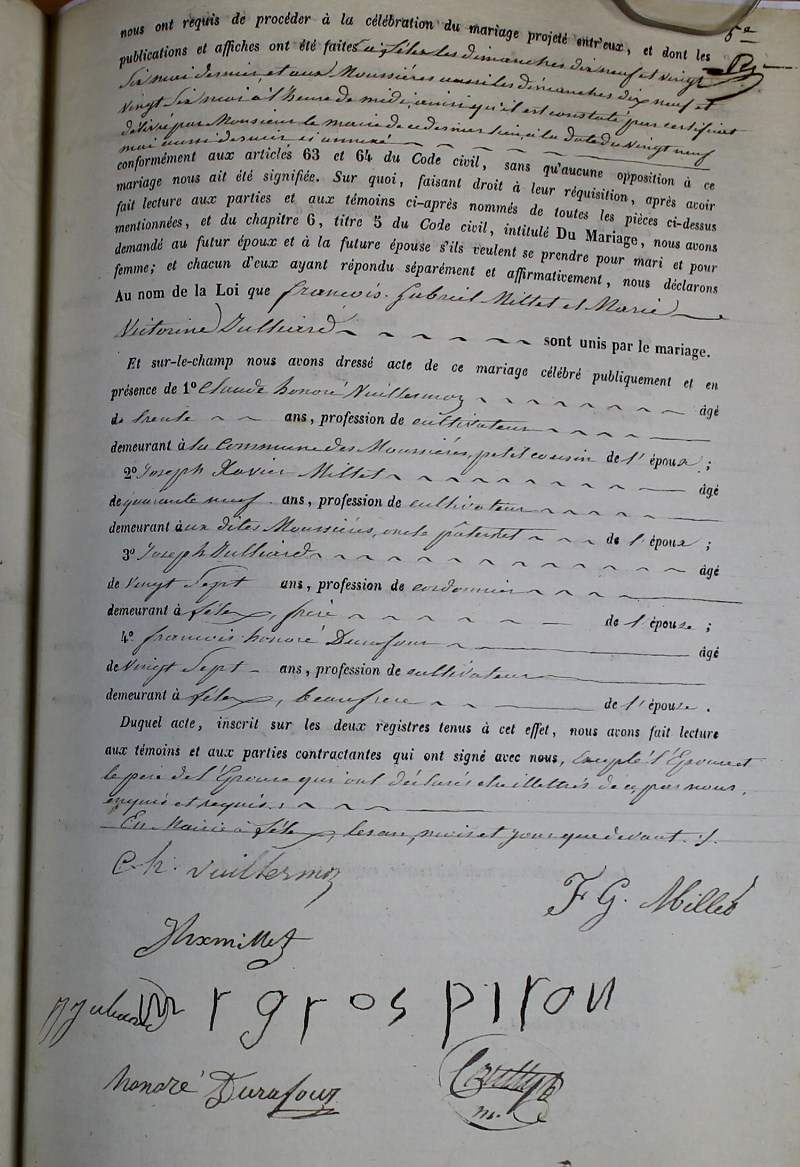 5e
nous ont requis de procéder à la célébration du mariage projeté entr'eux, et dont les
publications et affiches ont été faites à félex les dimanches dix neuf et vingt
Six mai dernier, et aux Moussières aussi les dimanches dix neuf et
vingt Six mai à l'heure de midi, ainsi qu'il est constaté par certificat
délivré par Monsieur le maire de ce dernier lieu, à la date du vingt neuf
mai aussi dernier ci annexé
conformément aux articles 63 et 64 du Code civil, sans qu'aucune opposition à ce
mariage nous ait été signifiée. Sur quoi, faisant droit à leur réquisition, après avoir
fait lecture aux parties et aux témoins ci-après nommés de toutes les pièces ci-dessus
mentionnées, et du chapitre 6, titre 5 du Code civil, intitulé Du Mariage, nous avons
demandé au futur époux et à la future épouse s'ils veulent se prendre pour mari et pour
femme; et chacun d'eux ayant répondu séparément et affirmativement, nous déclarons
Au nom de la Loi que françois Gabriel Millet et Marie
Victorine Julliard sont unis par le mariage.
Et sur-le-champ nous avons dressé acte de ce mariage célébré publiquement et en
présence de 1º Claude honoré Vuillermoz âgé
de trente ans, profession de cultivateur
demeurant à la Commune des Moussières, petit cousin de l'époux;
2º Joseph Xavier Millet âgé
de quarante neuf ans, profession de cultivateur
demeurant aux dites Moussières, oncle paternel de l'époux;
3º Joseph Julliard âgé
de vingt Sept ans, profession de cordonnier
demeurant à félex, frère de l'épouse;
4º françois honoré Durafour âgé
de vingt Sept ans, profession de cultivateur
demeurant à félex, beaufrère de l'épouse.
Duquel acte, inscrit sur les deux registres tenus à cet effet, nous avons fait lecture
aux témoins et aux parties contractantes qui ont signé avec nous, excepté l'Epouse et
le père de l'Epouse qui ont déclarés être illettrés de ce par nous
enquis et requis.
En Mairie à félex, les an, mois et jour que devant.
C. h. Vuillermoz
F G. Millet
JhXmillet
r grospiron
honoré Durafour